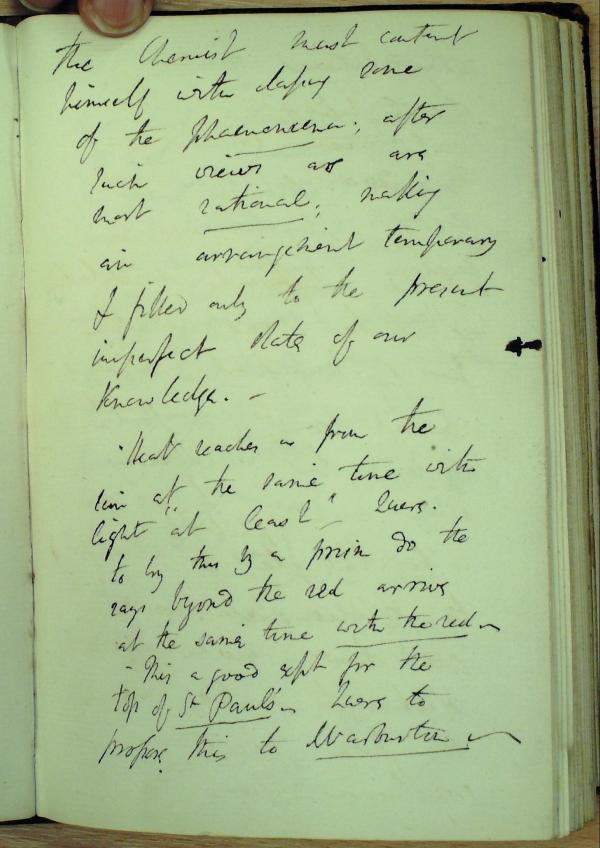 the Chemist must content
himself with classing some
of the phaenomena; after
such views as are
most rational; making
an arrangement temporary
& fitted only to the present
imperfect state of our
Knowledge. -
"Heat reaches us from the
sun at the same time with
light "at least" - Quere.
to try this by a prism do the
rays beyond the red arrive
at the same time with the red -
- This a good expt for the
top of St. Paul's - Quere to
propose this to Warburton -